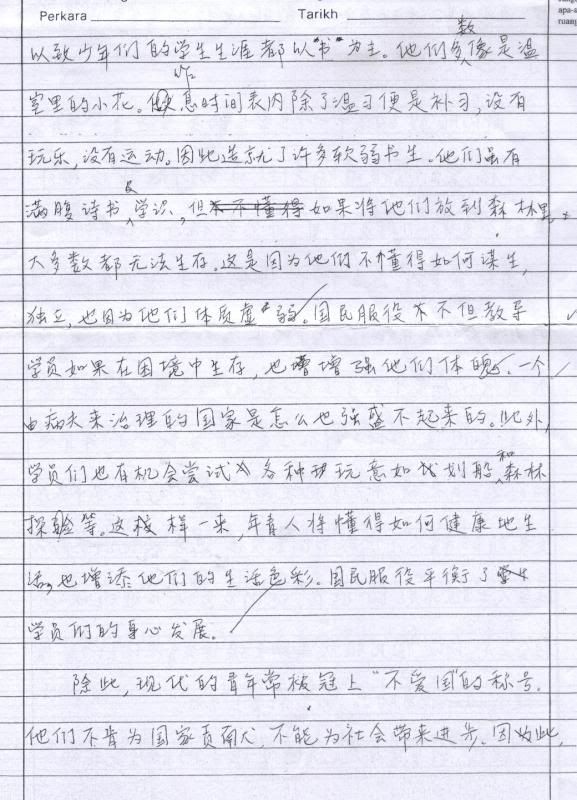 Perkara Tarikh
以致少年们的学生生涯都以“书”为主。他们多数像是温
室里的小花。作息时间表内除了温习便是补习，没有
玩乐，没有运动。因此造就了许多软弱书生。他们虽有
满腹诗书及学识，但如果将他们放到森林里，
大多数都无法生存。这是因为他们不懂得如何谋生，
独立，也因为他们体质虚弱。国民服役不但教导
学员如果在困境中生存，也增强他们体魄。一个
由病夫来治理的国家是怎么也强盛不起来的。此外，
学员们也有机会尝试各种玩意如划船和森林
探险等。这样一来，年青人将懂得如何健康地生
活，也增添他们的生活色彩。国民服役平衡了
学员们的身心发展。
除此，现代的青年常被冠上“不爱国”的称号。
他们不肯为国家贡献，不能为社会带来进步。因此，